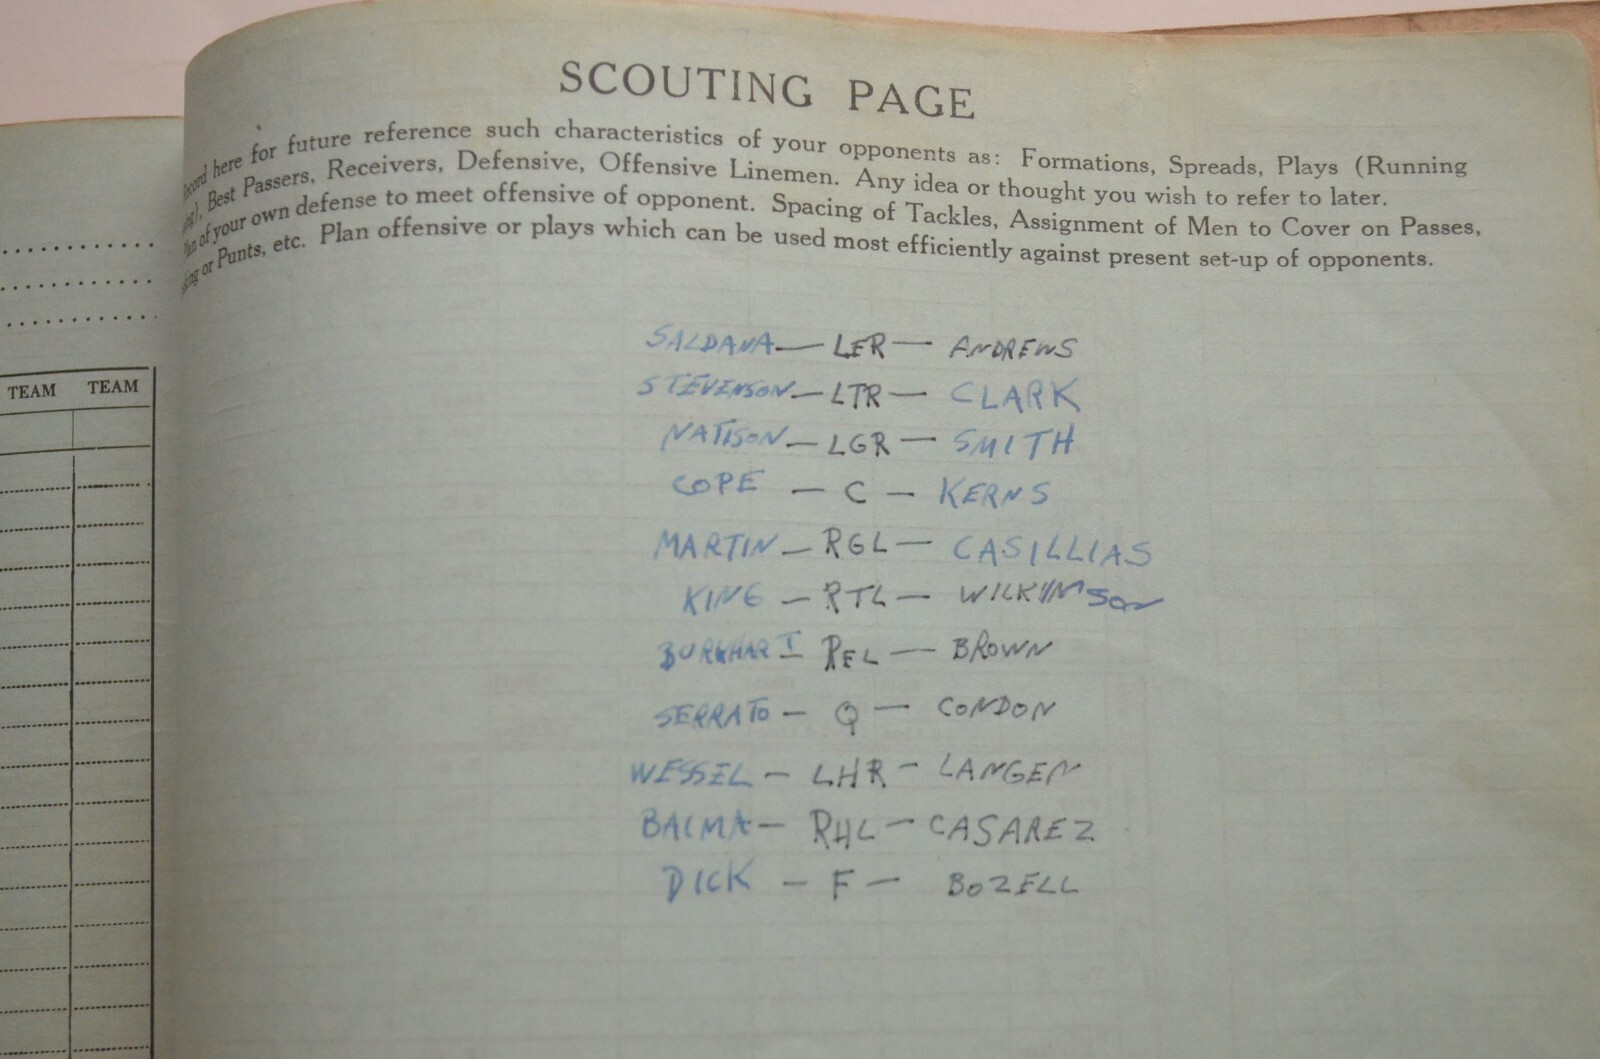 SCOUTING PAGE
Record here for future reference such characteristics of your opponents as: Formations, Spreads, Plays (Running
Best Passers, Receivers, Defensive, Offensive Linemen. Any idea or thought you wish to refer to later.
Plan of your own defense to meet offensive of opponent. Spacing of Tackles, Assignment of Men to Cover on Passes,
or Punts, etc. Plan offensive or plays which can be used most efficiently against present set-up of opponents.
TEAM TEAM
SALDANA — LER — ANDREWS
STEVENSON — LTR — CLARK
NATISON — LGR — SMITH
COPE — C — KERNS
MARTIN — RGL — CASILLIAS
KING — RTL — WILKINSON
BURKHART REL — BROWN
SERRATO — Q — CONDON
WESSEL — LHR — LANGEN
BALMA — RHL — CASAREZ
DICK — F — BOZELL